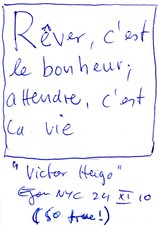 Rêver, c'est
le bonheur;
attendre, c'est
la vie
"Victor Hugo"
NYC 24 XI 10
(so true!)